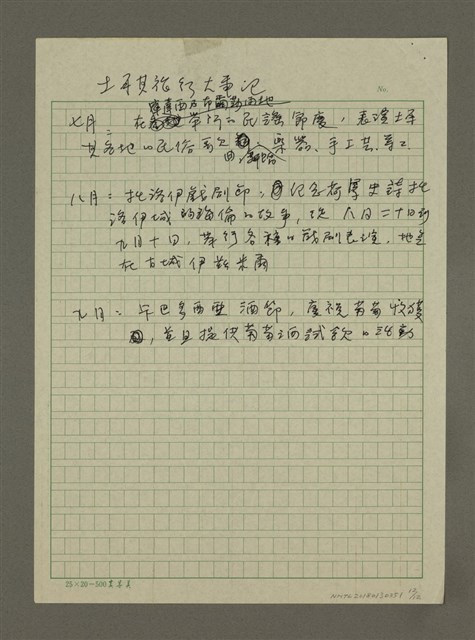 土耳其旅行大事記
No.
七月：在 西及布 兩地舉行の民謠節慶，表演土耳
其各地の民俗 、樂器、手工藝等工
八月：托洛伊戲劇節：紀念荷馬史詩托
洛伊城的海倫の故事，從八月二十日到
九月十日，舉行各種の戲劇表演，地點
在古城伊斯米爾
九月：卡巴多西亞酒節，慶祝葡萄收穫
，並且提供葡萄酒試飲の活動
25×20=500
NMTL20180130351 12/12